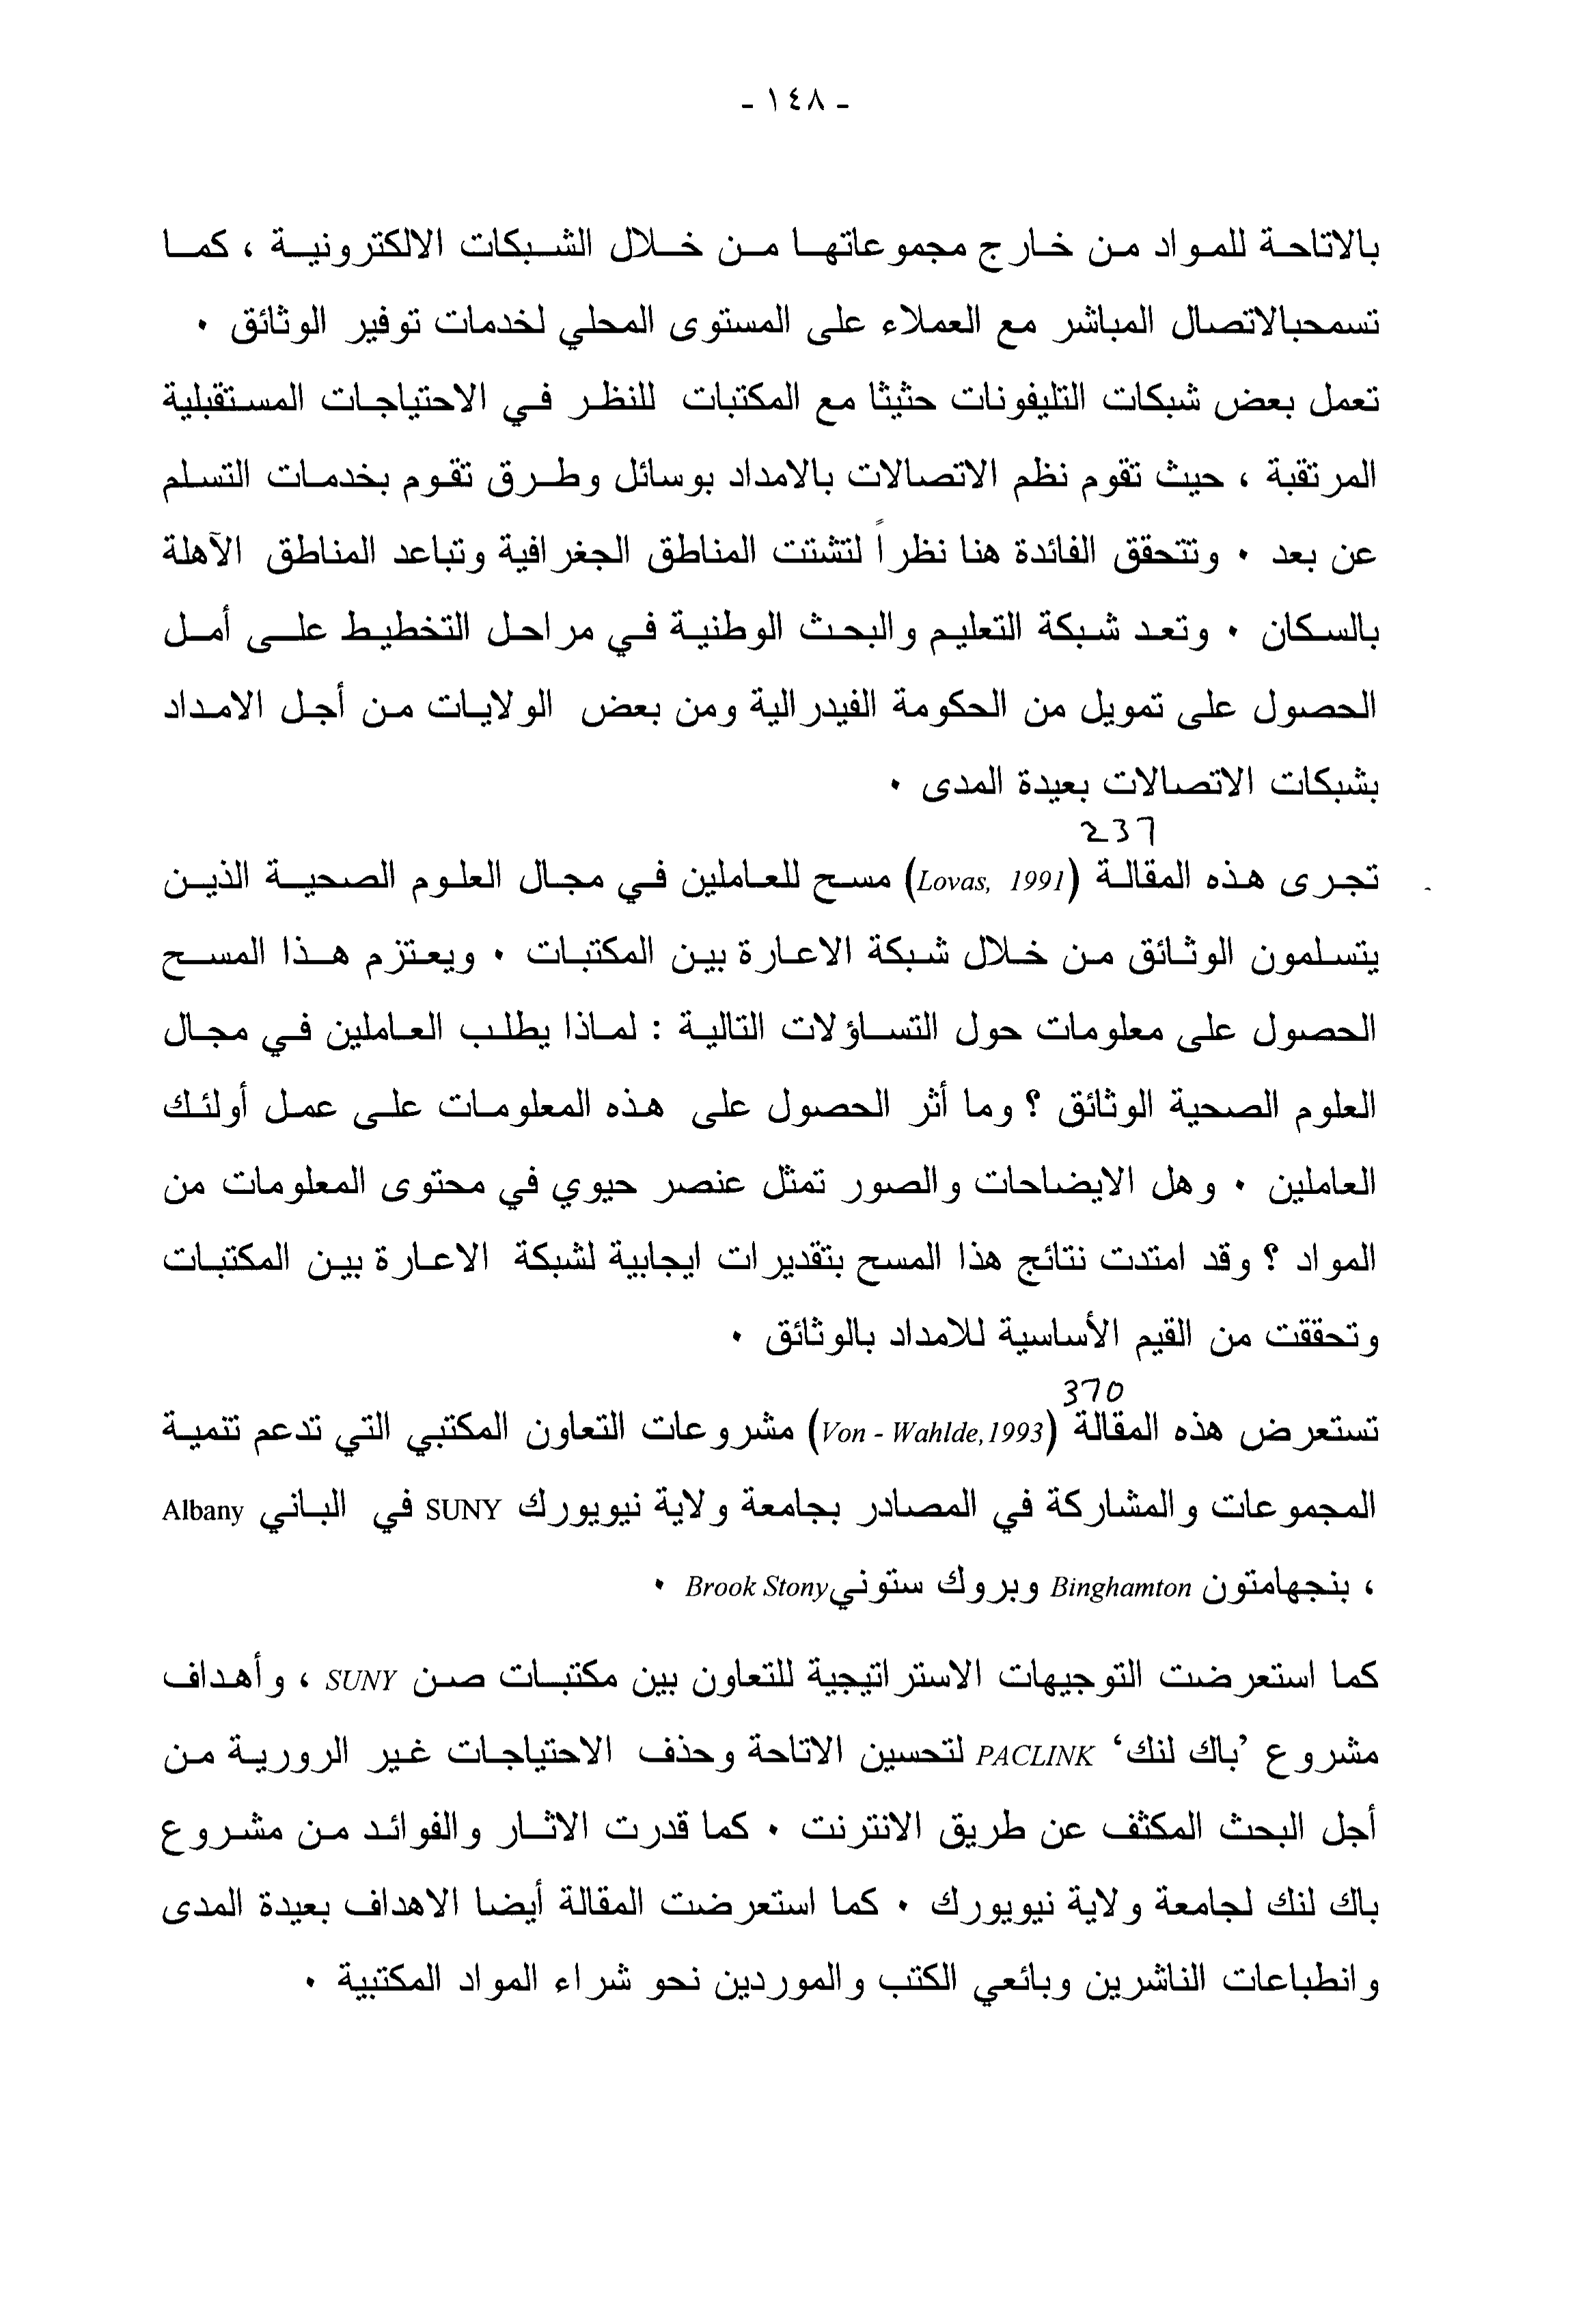 - ١٤٨ -
بالاتاحة للمواد من خارج مجموعاتها من خلال الشبكات الالكترونية ، كما
تسمحبالاتصال المباشر مع العملاء على المستوى المحلي لخدمات توفير الوثائق ٠
تعمل بعض شبكات التليفونات حثيثا مع المكتبات للنظر في الاحتياجات المستقبلية
المرتقبة ، حيث تقوم نظم الاتصالات بالامداد بوسائل وطرق تقوم بخدمات التسلم
عن بعد ٠ وتتحقق الفائدة هنا نظراً لتشتت المناطق الجغرافية وتباعد المناطق الآهلة
بالسكان ٠ وتعد شبكة التعليم والبحث الوطنية في مراحل التخطيط على أمل
الحصول على تمويل من الحكومة الفيدرالية ومن بعض الولايات من أجل الامداد
بشبكات الاتصالات بعيدة المدى ٠
237
تجرى هذه المقالة (Lovas, 1991) مسح للعاملين في مجال العلوم الصحية الذين
يتسلمون الوثائق من خلال شبكة الاعارة بين المكتبات ٠ ويعتزم هذا المسح
الحصول على معلومات حول التساؤلات التالية : لماذا يطلب العاملين في مجال
العلوم الصحية الوثائق ؟ وما أثر الحصول على هذه المعلومات على عمل أولئك
العاملين ٠ وهل الايضاحات والصور تمثل عنصر حيوي في محتوى المعلومات من
المواد ؟ وقد امتدت نتائج هذا المسح بتقديرات ايجابية لشبكة الاعارة بين المكتبات
وتحققت من القيم الأساسية للامداد بالوثائق ٠
370
تستعرض هذه المقالة (Von - Wahlde,1993) مشروعات التعاون المكتبي التي تدعم تنمية
المجموعات والمشاركة في المصادر بجامعة ولاية نيويورك SUNY في الباني Albany
، بنجهامتون Binghamton وبروك ستوني Brook Stony ٠
كما استعرضت التوجيهات الاستراتيجية للتعاون بين مكتبات صن SUNY ، وأهداف
مشروع ’باك لنك‘ PACLINK لتحسين الاتاحة وحذف الاحتياجات غير الرورية من
أجل البحث المكثف عن طريق الانترنت ٠ كما قدرت الاثار والفوائد من مشروع
باك لنك لجامعة ولاية نيويورك ٠ كما استعرضت المقالة أيضا الاهداف بعيدة المدى
وانطباعات الناشرين وبائعي الكتب والموردين نحو شراء المواد المكتبية ٠